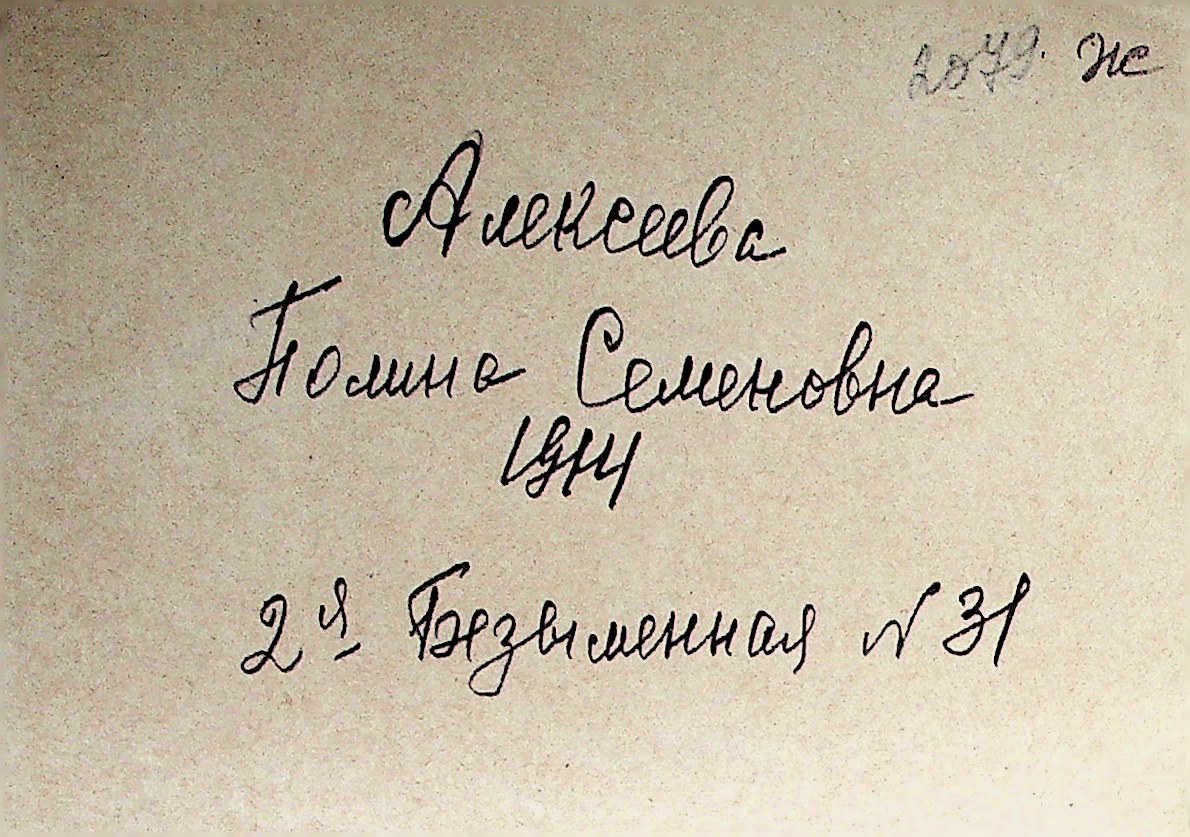 2079. Ж
Алексеева
Полина Семеновна
1914
2я Безыменная N 31